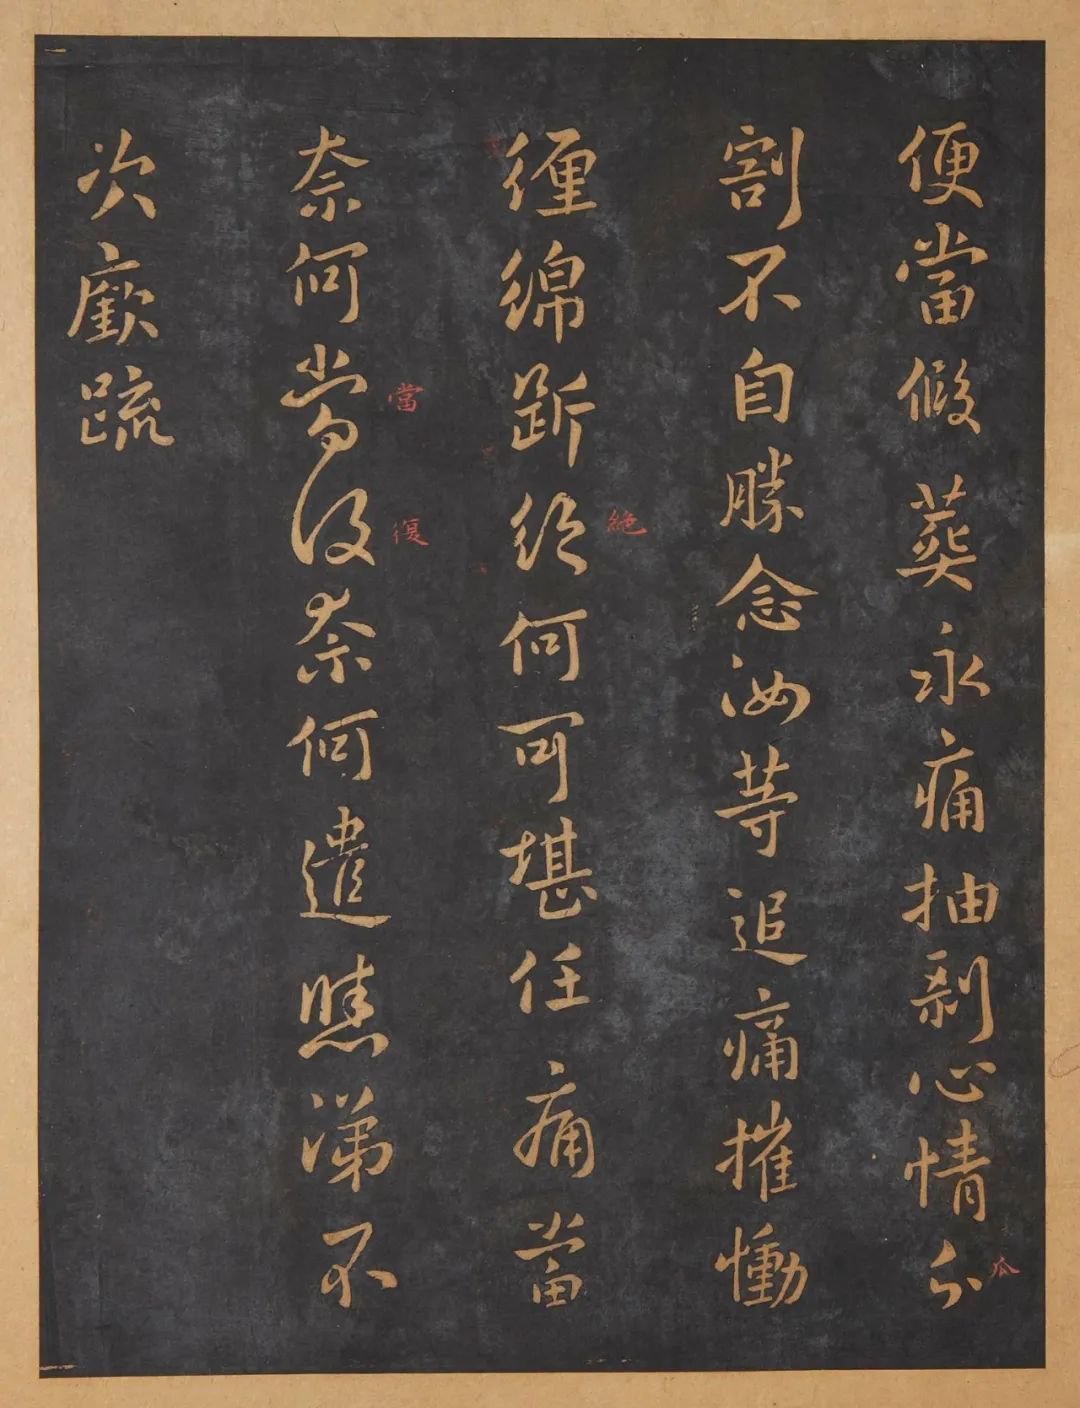 便當假葬永痛抽剝心情分
割不自勝念汝等追痛摧慟
纏綿斷絕何可堪任痛當
絕
奈何當復奈何遣涕不
當
復
次廞疏